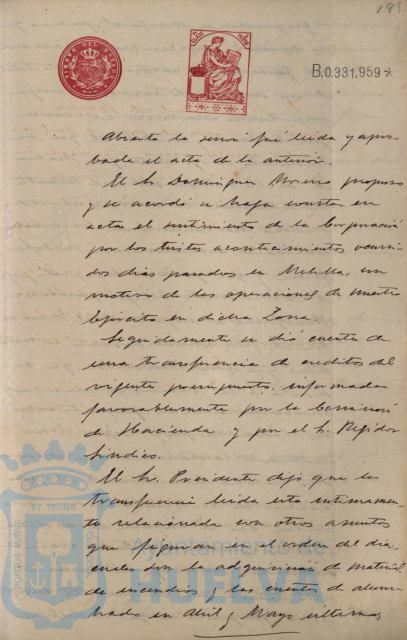 189
TIMBRE DEL ESTADO
B.0.331,959 *
Abierta la sesión fué leida y apro-
bada el acta de la anterior.
El Sr. Dominguez Moreno propuso
y se acordó se haga constar en
acta el sentimiento de la Corporación
por los tristes acontecimientos ocurri-
dos dias pasados en Melilla, con
motivo de las operaciones de nuestro
Ejército en dicha Zona.
Seguidamente se dió cuenta de
una transferencia de creditos del
vigente presupuesto, informada
favorablemente por la Comisión
de Hacienda y por el Sr. Regidor
Sindico.
El Sr. Presidente dijo que la
transferencia leida está intimamen-
te relacionada con otros asuntos
que figuran en el orden del dia,
cuales son la adquisicion de material
de incendios y las cuentas de alum-
brado en Abril y Mayo últimos
PORTUS MARIS ET TERRAE
Ayuntamiento de
HUELVA